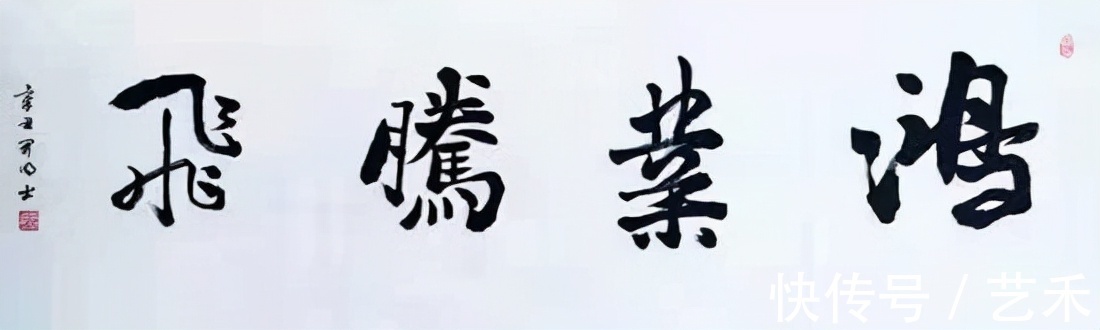 鴻業騰飛
辛丑
快传号 / 艺禾